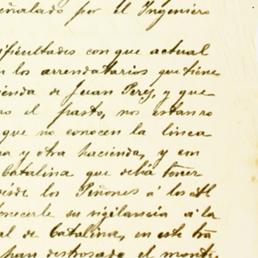 eñalado por el Ingeniero
ificultades con que actual
n los arrendatarios que tiene
ienda de Juan Peréz, y que
el pasto, nos
que no conocen la linea
a y otra hacienda, y em
Catalina que debía tener
esde los Piñones á los Al
onocerle su vigilancia á la
al de Catalina, en este tra
han destrosado el monte